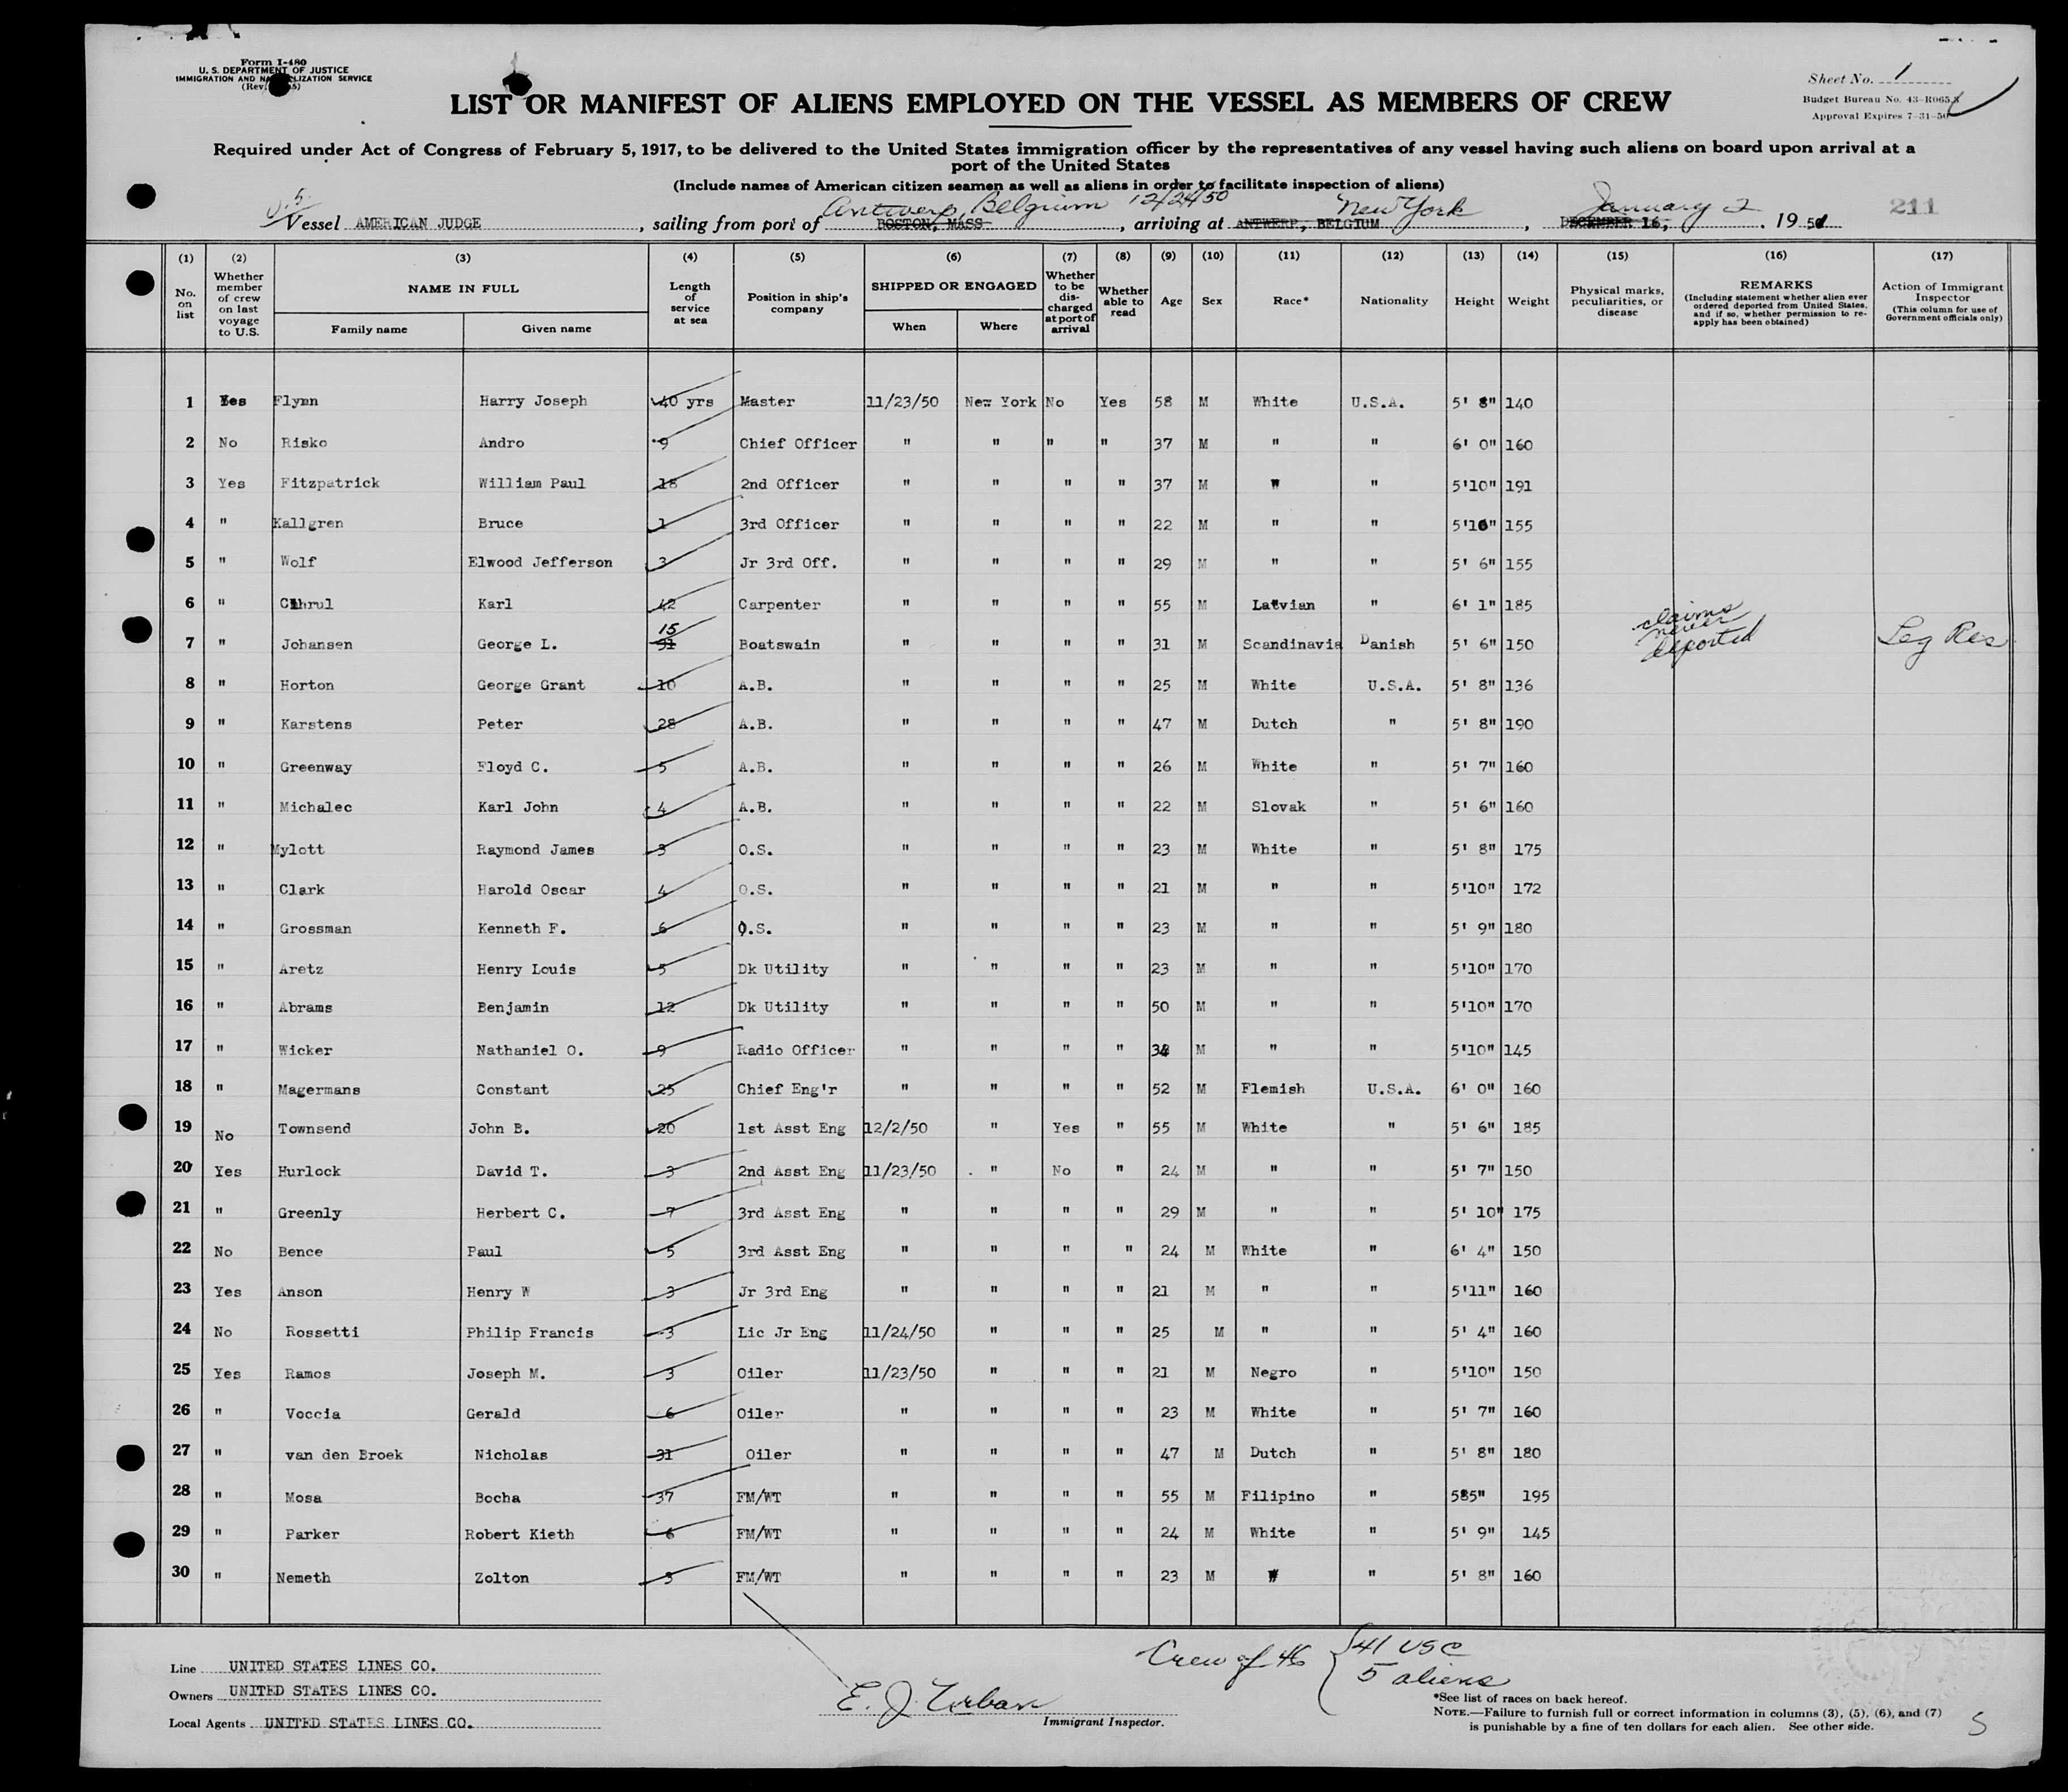 Form I-480
U. S. DEPARTMENT OF JUSTICE
IMMIGRATION AND NATURALIZATION SERVICE
Sheet No. 1
Budget Bureau No. 43-R065.3
Approval Expires 7-31-50
LIST OR MANIFEST OF ALIENS EMPLOYED ON THE VESSEL AS MEMBERS OF CREW
Required under Act of Congress of February 5, 1917, to be delivered to the United States immigration officer by the representatives of any vessel having such aliens on board upon arrival at a
port of the United States
(Include names of American citizen seamen as well as aliens in order to facilitate inspection of aliens)
U.S. Antwerp, Belgium 12/24/50 New York January 2
Vessel AMERICAN JUDGE, sailing from port of BOSTON, MASS, arriving at ANTWERP, BELGIUM, DECEMBER 16, 1951 211
(1) (2) (3) (4) (5) (6) (7) (8) (9) (10) (11) (12) (13) (14) (15) (16) (17)
No. on list
Whether member of crew on last voyage to U.S.
NAME IN FULL
Family name Given name
Length of service at sea
Position in ship's company
SHIPPED OR ENGAGED
When Where
Whether to be discharged at port of arrival
Whether able to read
Age Sex Race* Nationality Height Weight
Physical marks, peculiarities, or disease
REMARKS
(Including statement whether alien ever ordered deported from United States, and if so, whether permission to re-apply has been obtained)
Action of Immigrant Inspector
(This column for use of Government officials only)
1 Yes Flynn Harry Joseph 40 yrs Master 11/23/50 New York No Yes 58 M White U.S.A. 5' 8" 140
2 No Risko Andro 9 Chief Officer " " " " 37 M " " 6' 0" 160
3 Yes Fitzpatrick William Paul 18 2nd Officer " " " " 37 M " " 5'10" 191
4 " Kallgren Bruce 1 3rd Officer " " " " 22 M " " 5'10" 155
5 " Wolf Elwood Jefferson 3 Jr 3rd Off. " " " " 29 M " " 5' 6" 155
6 " Karl 42 Carpenter " " " " 55 M Latvian " 6' 1" 185
7 " Johansen George L. 15 Boatswain " " " " 31 M Scandinavia Danish 5' 6" 150 claims never deported Leg Res
8 " Horton George Grant 10 A.B. " " " " 25 M White U.S.A. 5' 8" 136
9 " Karstens Peter 28 A.B. " " " " 47 M Dutch " 5' 8" 190
10 " Greenway Floyd C. 5 A.B. " " " " 26 M White " 5' 7" 160
11 " Michalec Karl John 4 A.B. " " " " 22 M Slovak " 5' 6" 160
12 " Mylott Raymond James 3 O.S. " " " " 23 M White " 5' 8" 175
13 " Clark Harold Oscar 4 O.S. " " " " 21 M " " 5'10" 172
14 " Grossman Kenneth F. 6 O.S. " " " " 23 M " " 5' 9" 180
15 " Aretz Henry Louis 5 Dk Utility " " " " 23 M " " 5'10" 170
16 " Abrams Benjamin 12 Dk Utility " " " " 50 M " " 5'10" 170
17 " Wicker Nathaniel O. 9 Radio Officer " " " " M " " 5'10" 145
18 " Magermans Constant 25 Chief Eng'r " " " " 52 M Flemish U.S.A. 6' 0" 160
19 No Townsend John B. 20 1st Asst Eng 12/2/50 " Yes " 55 M White " 5' 6" 185
20 Yes Hurlock David T. 3 2nd Asst Eng 11/23/50 " No " 24 M " " 5' 7" 150
21 " Greenly Herbert C. 7 3rd Asst Eng " " " " 29 M " " 5' 10" 175
22 No Bence Paul 5 3rd Asst Eng " " " " 24 M White " 6' 4" 150
23 Yes Anson Henry W 3 Jr 3rd Eng " " " " 21 M " " 5'11" 160
24 No Rossetti Philip Francis 3 Lic Jr Eng 11/24/50 " " " 25 M " " 5' 4" 160
25 Yes Ramos Joseph M. 3 Oiler 11/23/50 " " " 21 M Negro " 5'10" 150
26 " Voccia Gerald 6 Oiler " " " " 23 M White " 5' 7" 160
27 " van den Broek Nicholas 31 Oiler " " " " 47 M Dutch " 5' 8" 180
28 " Mosa Bocha 37 FM/WT " " " " 55 M Filipino " 5'5" 195
29 " Parker Robert Kieth 6 FM/WT " " " " 24 M White " 5' 9" 145
30 " Nemeth Zolton 3 FM/WT " " " " 23 M " " 5' 8" 160
Line UNITED STATES LINES CO.
Owners UNITED STATES LINES CO.
Local Agents UNITED STATES LINES CO.
E. J. Urban
Immigrant Inspector.
Crew of 46 { 41 USC
5 aliens
*See list of races on back hereof.
NOTE.—Failure to furnish full or correct information in columns (3), (5), (6), and (7)
is punishable by a fine of ten dollars for each alien. See other side.